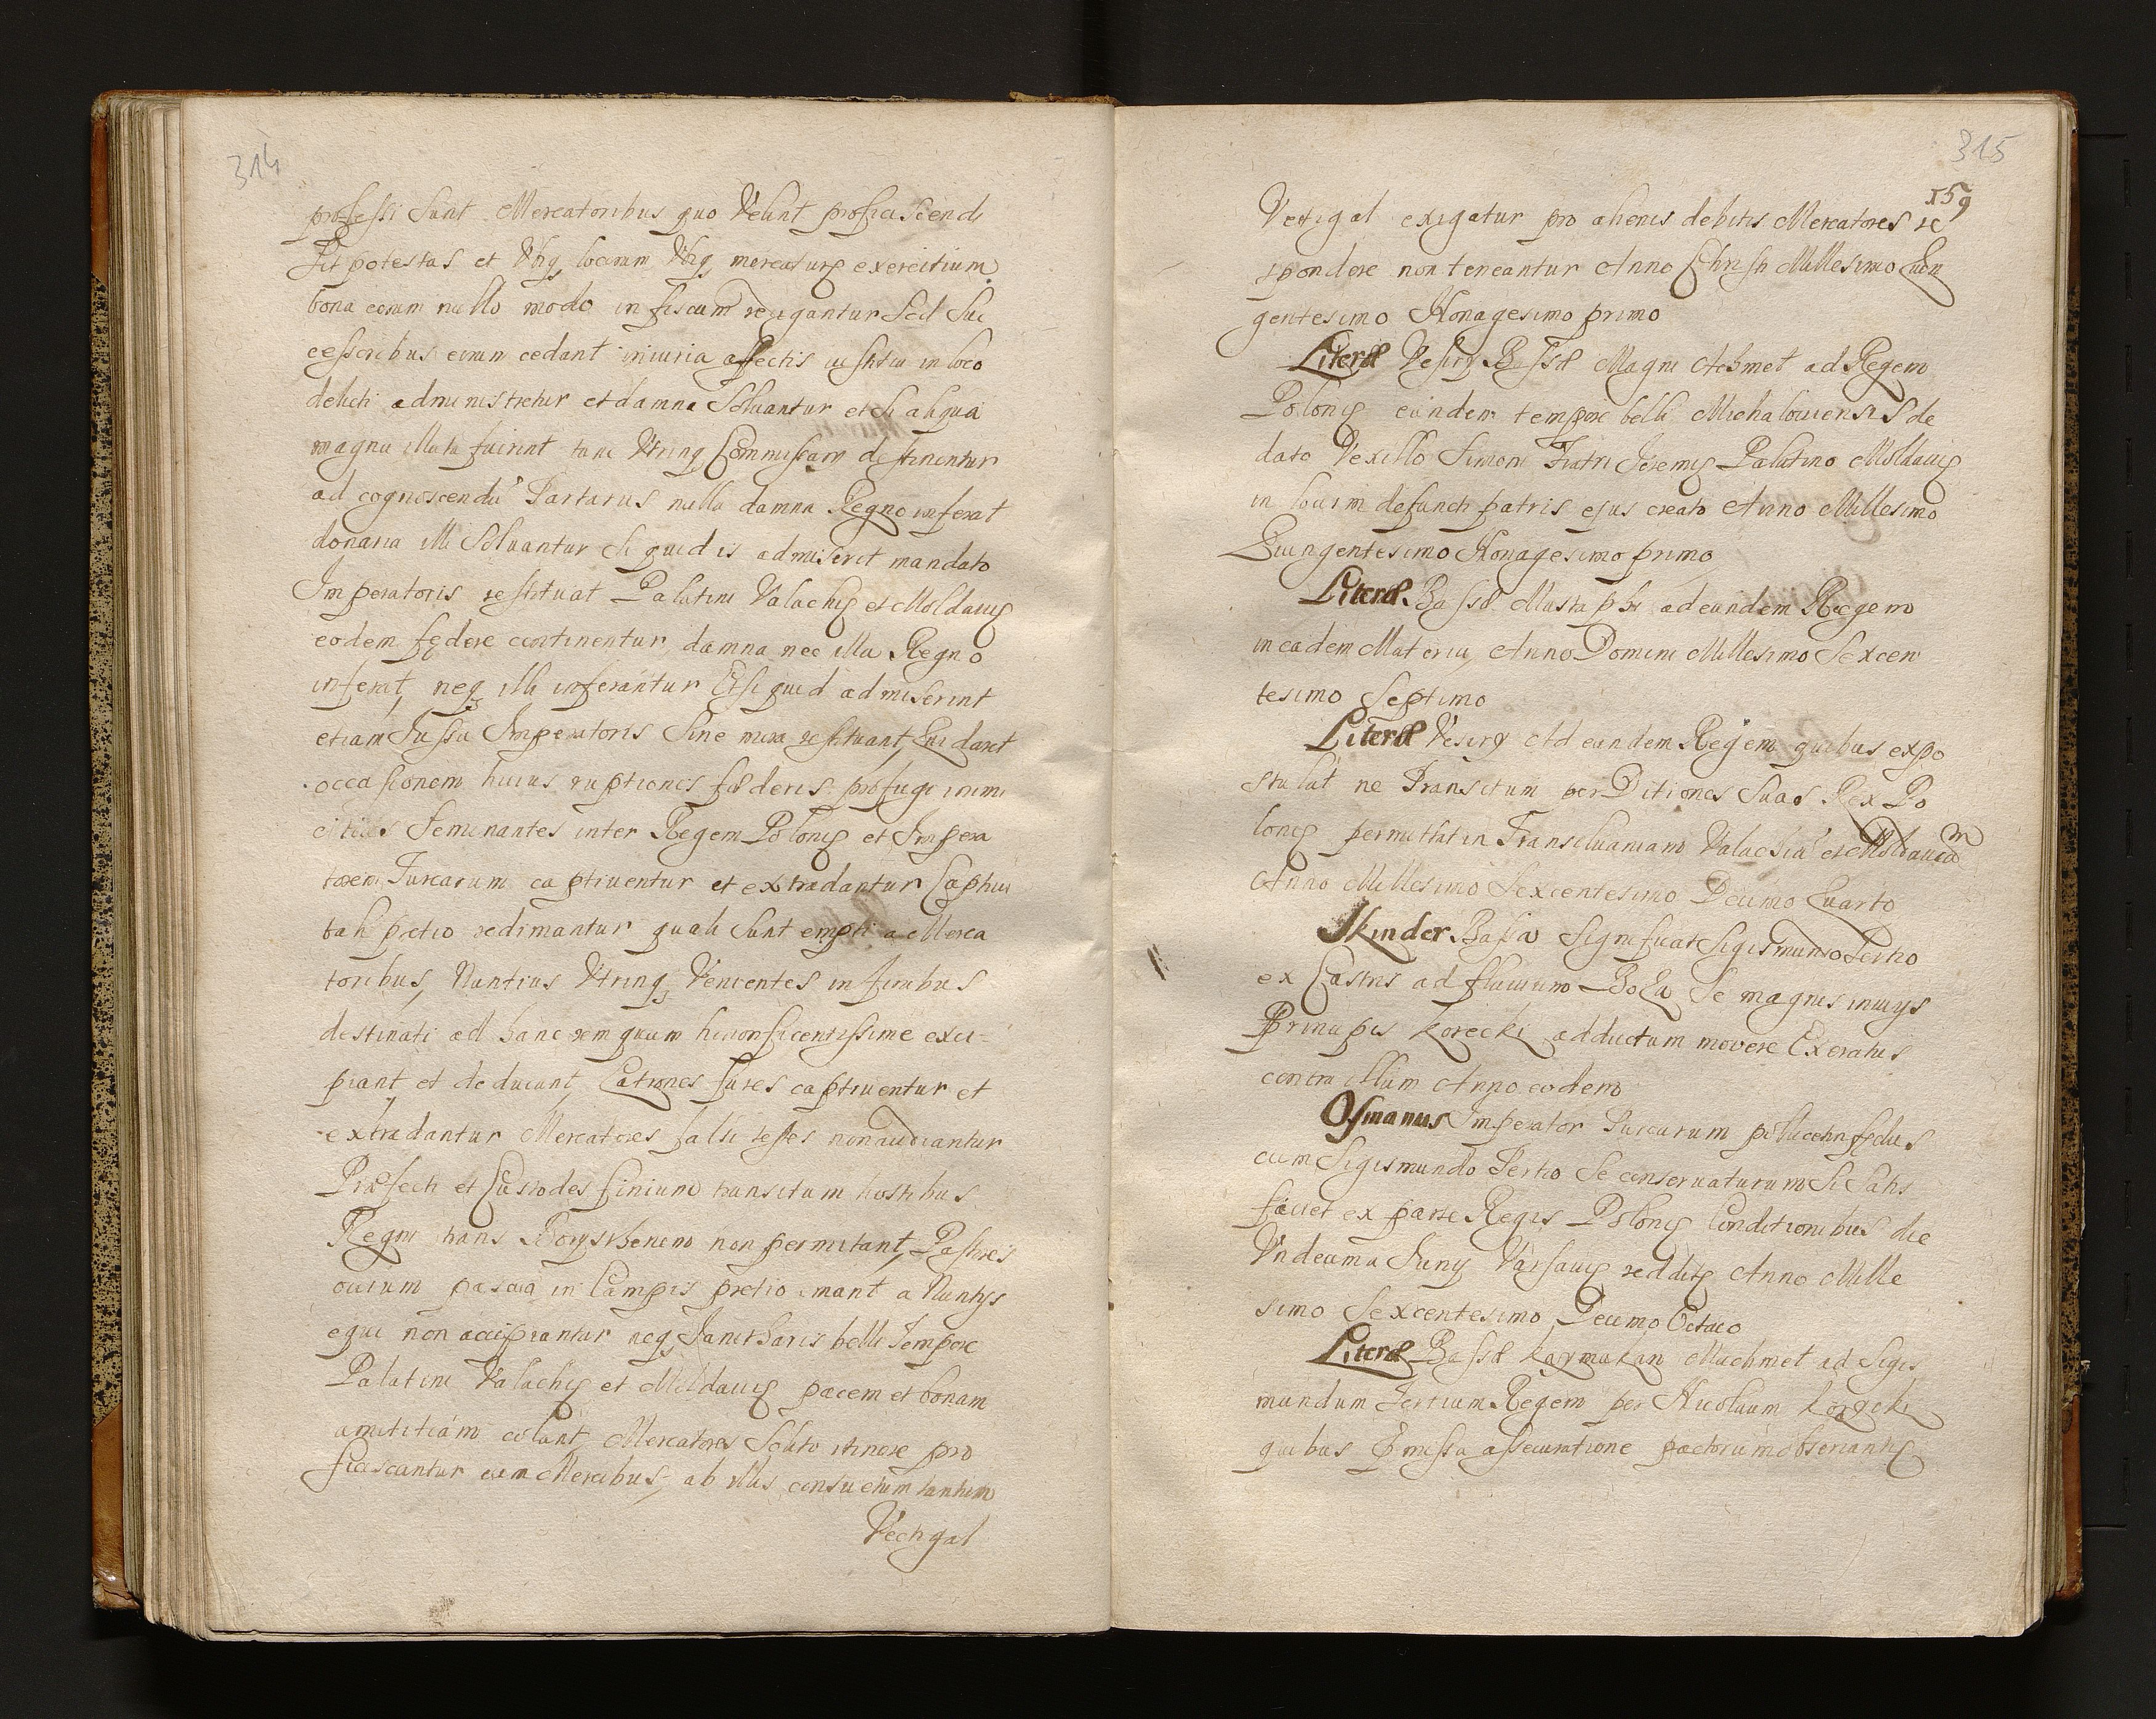 314
professi sunt Mercatoribus quo Velint proficiscendi
sit potestas et Vbiq locorum Vbiq mercaturę exercitium
bona eorum nullo modo in fiscum redigantur Sed Suc
cessoribus eorum cedant iniuria affectis iustitia in loco
delicti administretur et damna Soluantur et si aliqua
magna illata fuerint tunc Vtrinq Commissarii destinentur
ad cognoscendu Tartarus nulla damna Regno inferat
donaria illi Soluantur Si quid is admiserit mandato
Imperatoris restituat Palatini Valachię et Moldauię
eodem fędere continentur, damna nec illa Regno
inferat, neq illi inferantur Et si quid admiserint
etiam Iussu Imperatoris Sine mora restituant, Qui dant
occasionem huius ruptionis fæderis profugi inimi
citias Seminantes inter Regem Polonię et Impera
torem Turcarum captiuentur et extradantur Captiui
tali pretio redimantur quali Sunt empti a Merca
toribus, Nuntius Vtrinq Venientes in finibus
destinati ad hanc rem quam honorificentissime exci-
piant et deducant, Latrones fures captiuentur et
extradantur Mercatores falsi testes non audiantur
Præfecti et Custodes finium transitum hostibus
Regni trans Borysthenem non permitant, Pastores
ouium pascua in Campis pretio emant a Nuntys
equi non accipiantur neq Janitsaris belli Tempore
Palatini Valachię et Moldauię pacem et bonam
amicitiam colant, Mercatores Soluto itinere pro
ficiscantur cum Mercibus, ab illis consuetum tantum
Vectigal
315
159
Vectigal exigatur pro alienis debitis Mercatores re
spondere non teneantur Anno Christi Millesimo Quin
gentesimo Nonagesimo primo
Literæ Vesiry Bassæ Magni Achmet ad Regem
Polonię eundem tempore belli Michalouiensis de
dato Vexillo Simoni Fratri Jeremię Palatino Moldauię
in locum defuncti patris ejus creato Anno Millesimo
Quingentesimo Nonagesimo primo
Literæ Bassæ Mustaphæ ad eundem Regem
in eadem Materia, Anno Domini Millesimo Sexcen
tesimo Septimo
Literæ Vesiry Ad eundem Regem quibus expo
stulat ne Transitum per Ditiones Suas Rex Po
lonię permittat in Transiluaniam Valachia et Moldauiam
Anno Millesimo Sexcentesimo Decimo Quarto
Skinder Bassa Significat Sigismundo Tertio
ex Castris ad fluuium Se magnis iniurys
Principis Korecki adductum movere Exercitus
contra illum Anno eodem
Osmanus Imperator Turcarum pollicetur fędus
cum Sigismundo Tertio Se conseruaturum Si Satis
faciet ex parte Regis Polonię Conditionibus die
Vndecima Juny Varsauię redditę Anno Mille
simo Sexcentesimo Decimo Octauo
Literæ Bassæ Kaymakan Machmet ad Sigis
mundum Tertium Regem per Nicolaum
quibus præmissa assecuratione pactorum obseruantię